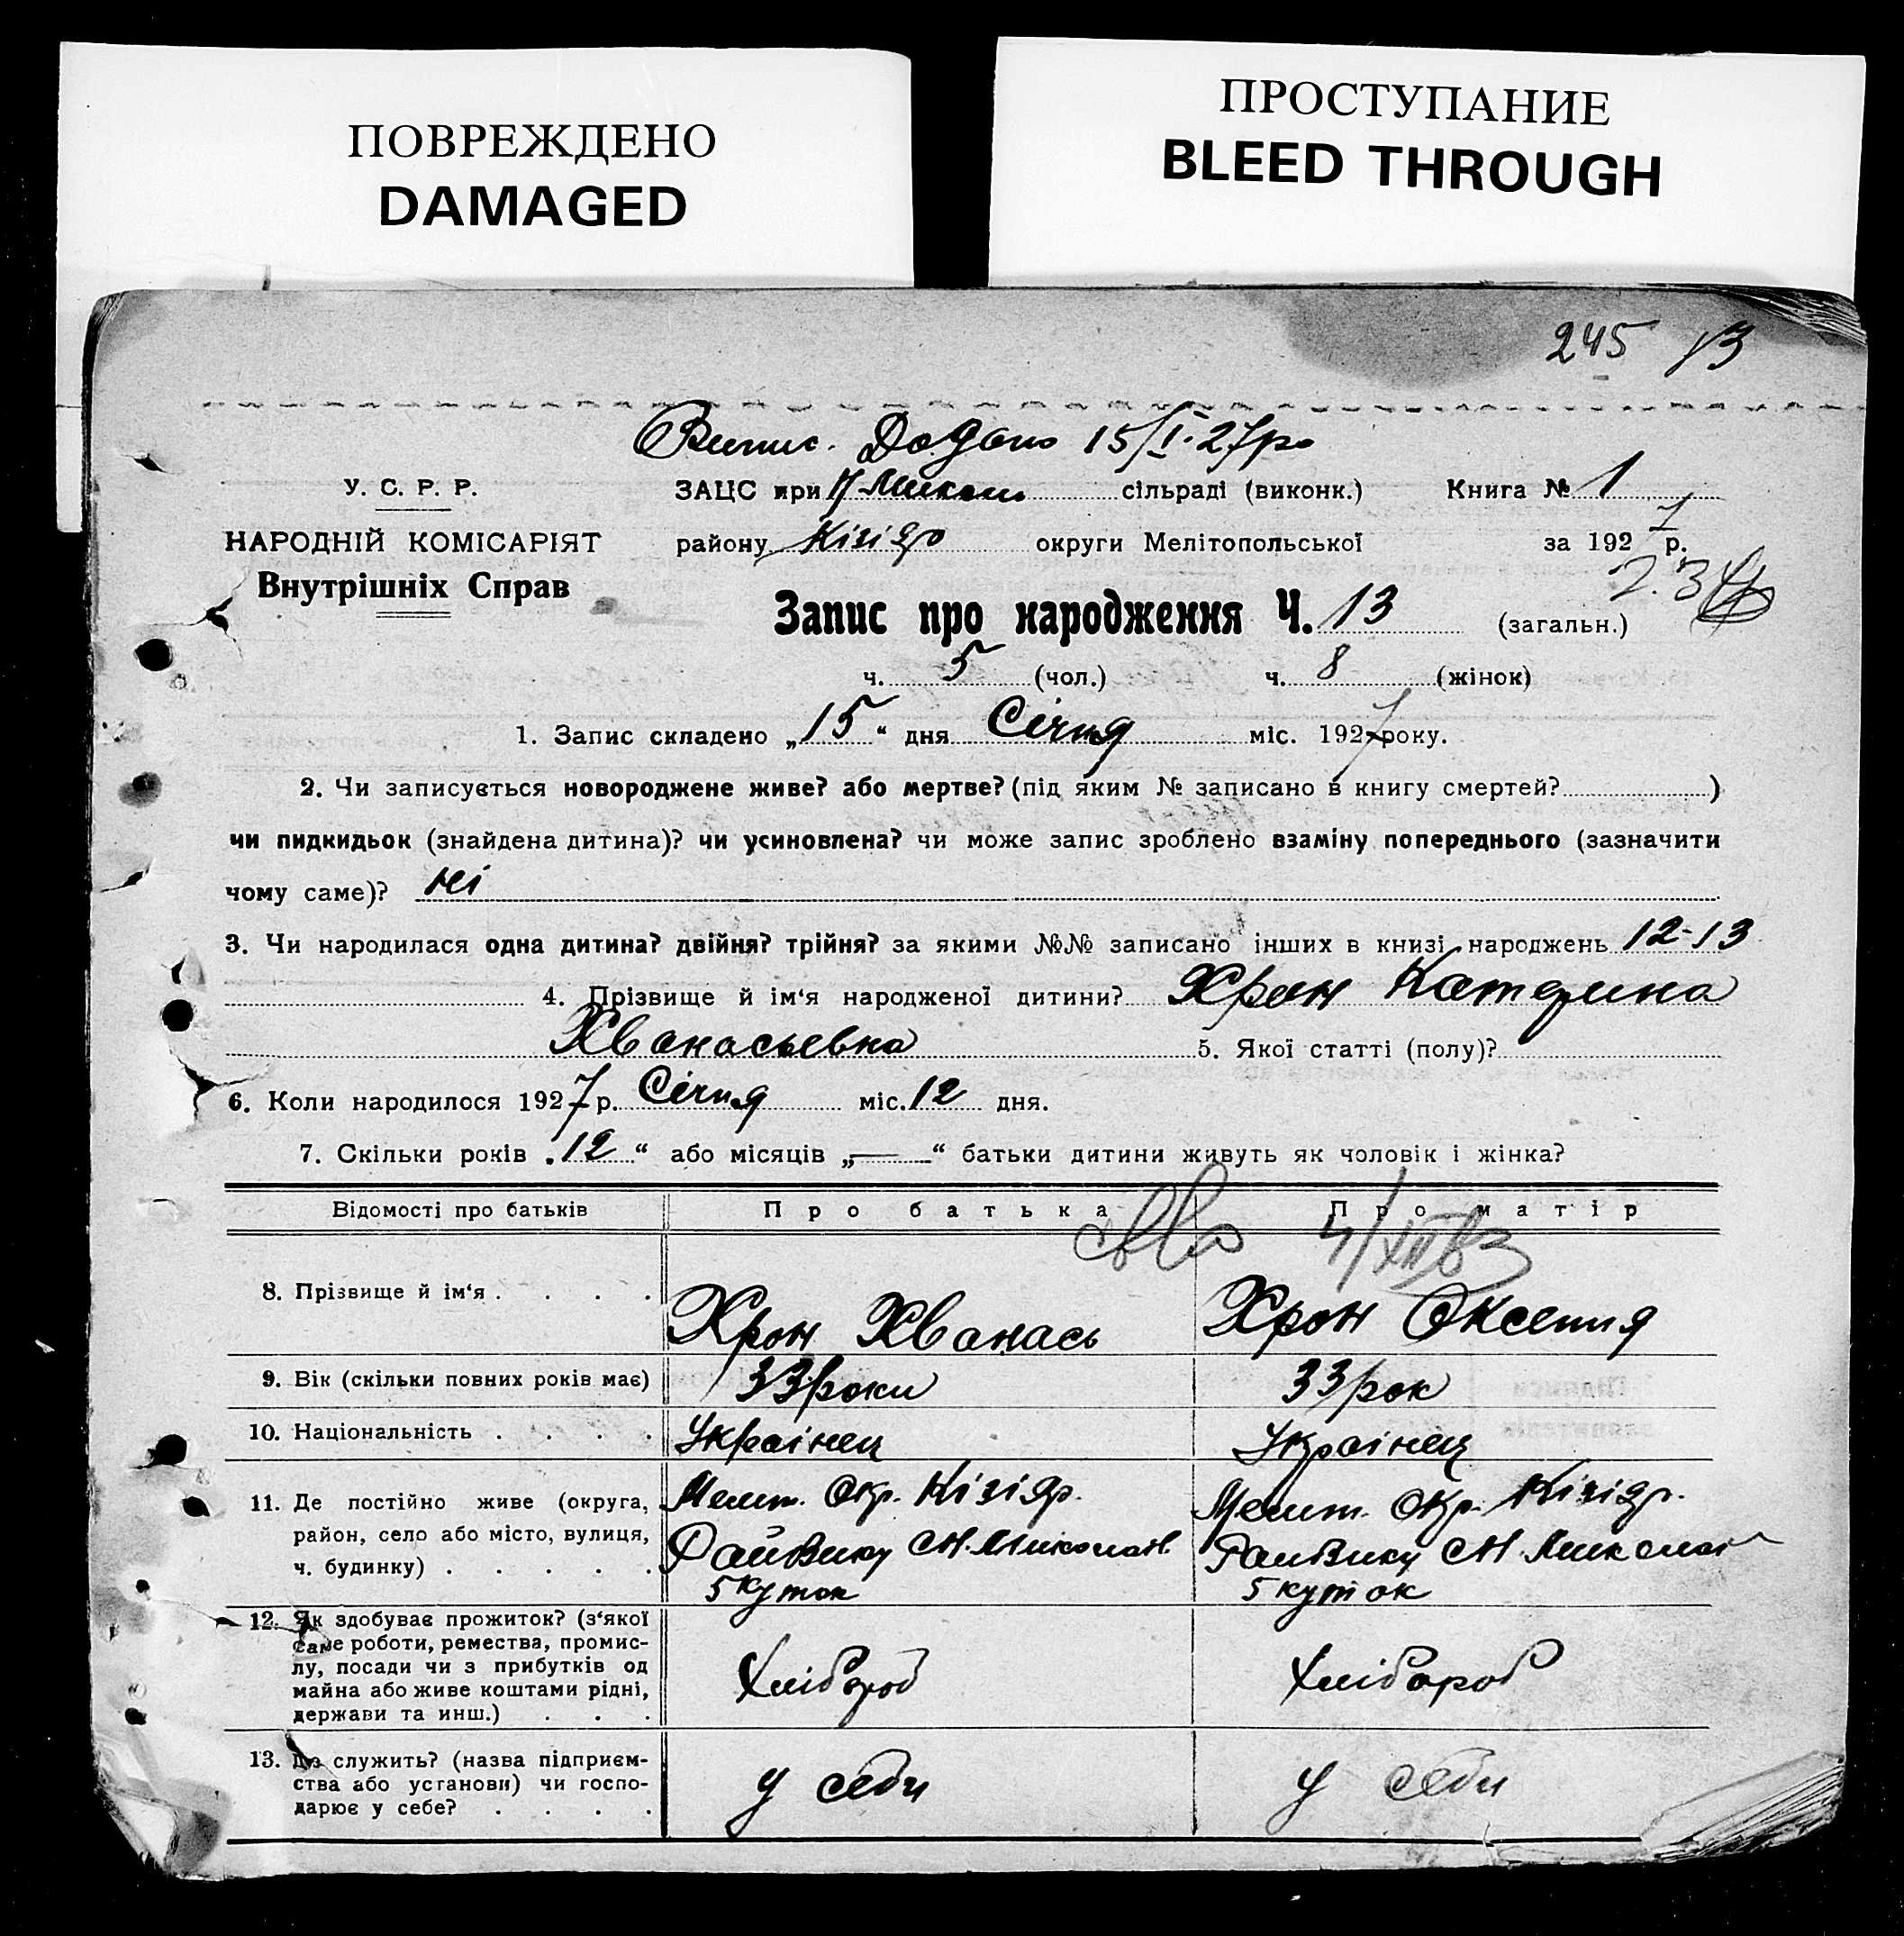 ПОВРЕЖДЕНО
DAMAGED
ПРОСТУПАНИЕ
BLEED THROUGH
245 13
Випис. Додано 15/I-27р
У. С. Р. Р.
ЗАЦС при Н Микол сільраді (виконк.) Книга № 1
НАРОДНІЙ КОМІСАРІЯТ
району Кізіяр округи Мелітопольської за 1927 р.
Внутрішніх Справ
Запис про народження Ч. 13 (загальн.)
ч. 5 (чол.) ч. 8 (жінок)
1. Запис складено „15“ дня Січня міс. 1927 року.
2. Чи записується новороджене живе? або мертве? (під яким № записано в книгу смертей? )
чи пидкидьок (знайдена дитина)? чи усиновлена? чи може запис зроблено взаміну попереднього (зазначити
чому саме)? ні
3. Чи народилася одна дитина? двійня? трійня? за якими №№ записано інших в книзі народжень 12-13
4. Прізвище й ім‘я народженої дитини? Хрон Катерина
Хванасьевна 5. Якої статті (полу)?
6. Коли народилося 1927 р. Січня міс. 12 дня.
7. Скільки років „12“ або місяців „—“ батьки дитини живуть як чоловік і жінка?
Відомості про батьків Про батька Про матір
8. Прізвище й ім‘я . . . . Хрон Хванась Хрон Оксения
9. Вік (скільки повних років має) 33 роки 33 рок
10. Національність . . . . Українец Українец
11. Де постійно живе (округа, район, село або місто, вулиця, ч. будинку) . . . . .
Мелит. Окр. Кізіяр.
Райвику СН. Миколаи.
5 куток
Мелит. Окр. Кізіяр.
Райвику СН Миколаі
5 куток
12. Як здобуває прожиток? (з‘якої
саме роботи, ремества, промис-
лу, посади чи з прибутків од
майна або живе коштами рідні,
держави та инш.) . . .
Хлібороб Хлібороб
13. Де служить? (назва підприєм-
ства або установи) чи госпо-
дарює у себе? . . . .
у себи у себи